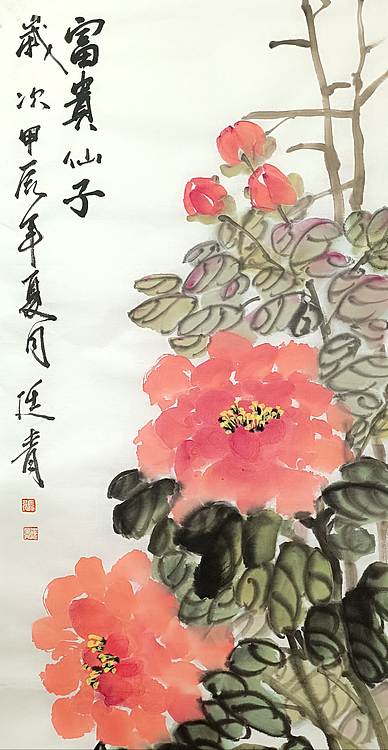 富貴仙子
歲次甲辰年夏月廷青